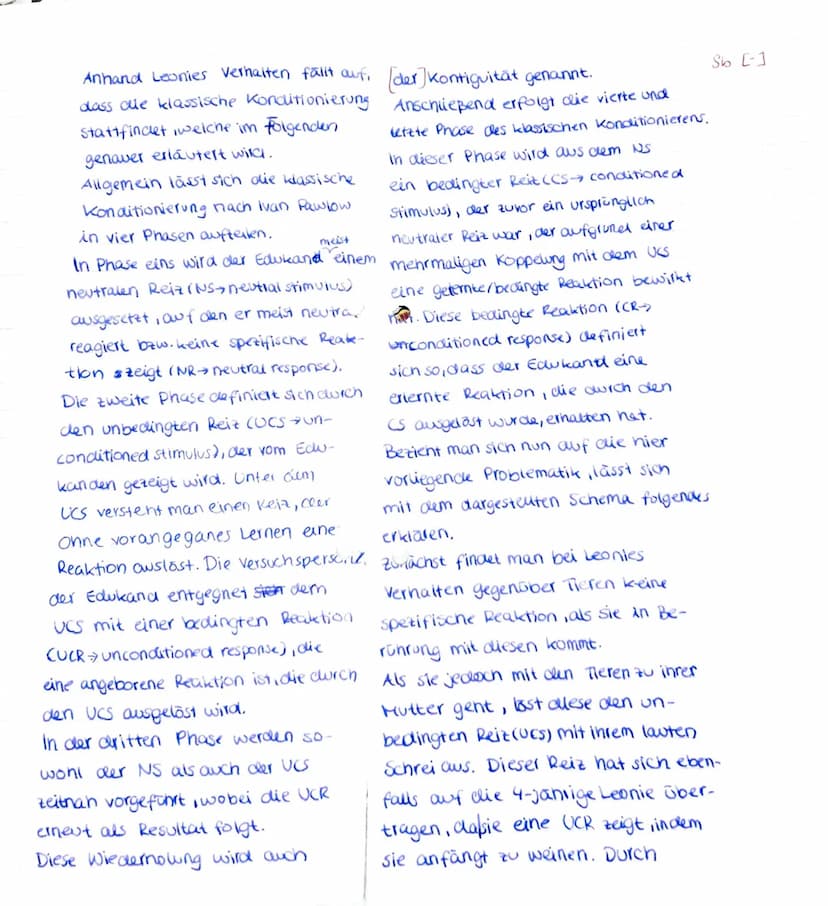 Anhand Leonies Verhalten fällt auf,
dass die klassische Konditionierung
stattfindet, welche im Folgenden
genauer erläutert wird.
Allgemein lässt sich die klassische
Konditionierung nach Ivan Pawlow
in vier Phasen aufteilen.
In Phase eins wird der Edukand meist einem
neutralen Reiz (NS → neutral stimulus)
ausgesetzt, auf den er meist neutral
reagiert bzw. keine spezifische Reak-
tion zeigt (NR → neutral response).
Die zweite Phase definiert sich durch
den unbedingten Reiz (UCS → un-
conditioned stimulus), der vom Edu-
kanden gezeigt wird. Unter dem
UCS versteht man einen Reiz, der
ohne vorangeganes Lernen eine
Reaktion auslöst. Die Versuchsperson/
der Edukand entgegnet dem
UCS mit einer bedingten Reaktion
(UCR → unconditioned response), die
eine angeborene Reaktion ist, die durch
den UCS ausgelöst wird.
In der dritten Phase werden so-
wohl der NS als auch der UCS
zeitnah vorgeführt, wobei die UCR
erneut als Resultat folgt.
Diese Wiederholung wird auch
Sb [-]
[der] Kontiguität genannt.
Anschließend erfolgt die vierte und
letzte Phase des klassischen Konditionierens.
In dieser Phase wird aus dem NS
ein bedingter Reiz (CS → conditioned
stimulus), der zuvor ein ursprünglich
neutraler Reiz war, der aufgrund einer
mehrmaligen Koppelung mit dem UCS
eine gelernte/bedingte Reaktion bewirkt
. Diese bedingte Reaktion (CR →
unconditioned response) definiert
sich so, dass der Edukand eine
erlernte Reaktion, die durch den
CS ausgelöst wurde, erhalten hat.
Bezieht man sich nun auf die hier
vorliegende Problematik, lässt sich
mit dem dargestellten Schema folgendes
erklären.
Zunächst findet man bei Leonies
Verhalten gegenüber Tieren keine
spezifische Reaktion, als sie in Be-
rührung mit diesen kommt.
Als sie jedoch mit den Tieren zu ihrer
Mutter geht, löst diese den un-
bedingten Reiz (UCS) mit ihrem lauten
Schrei aus. Dieser Reiz hat sich eben-
falls auf die 4-jährige Leonie über-
tragen, da sie eine UCR zeigt, indem
sie anfängt zu weinen. Durch